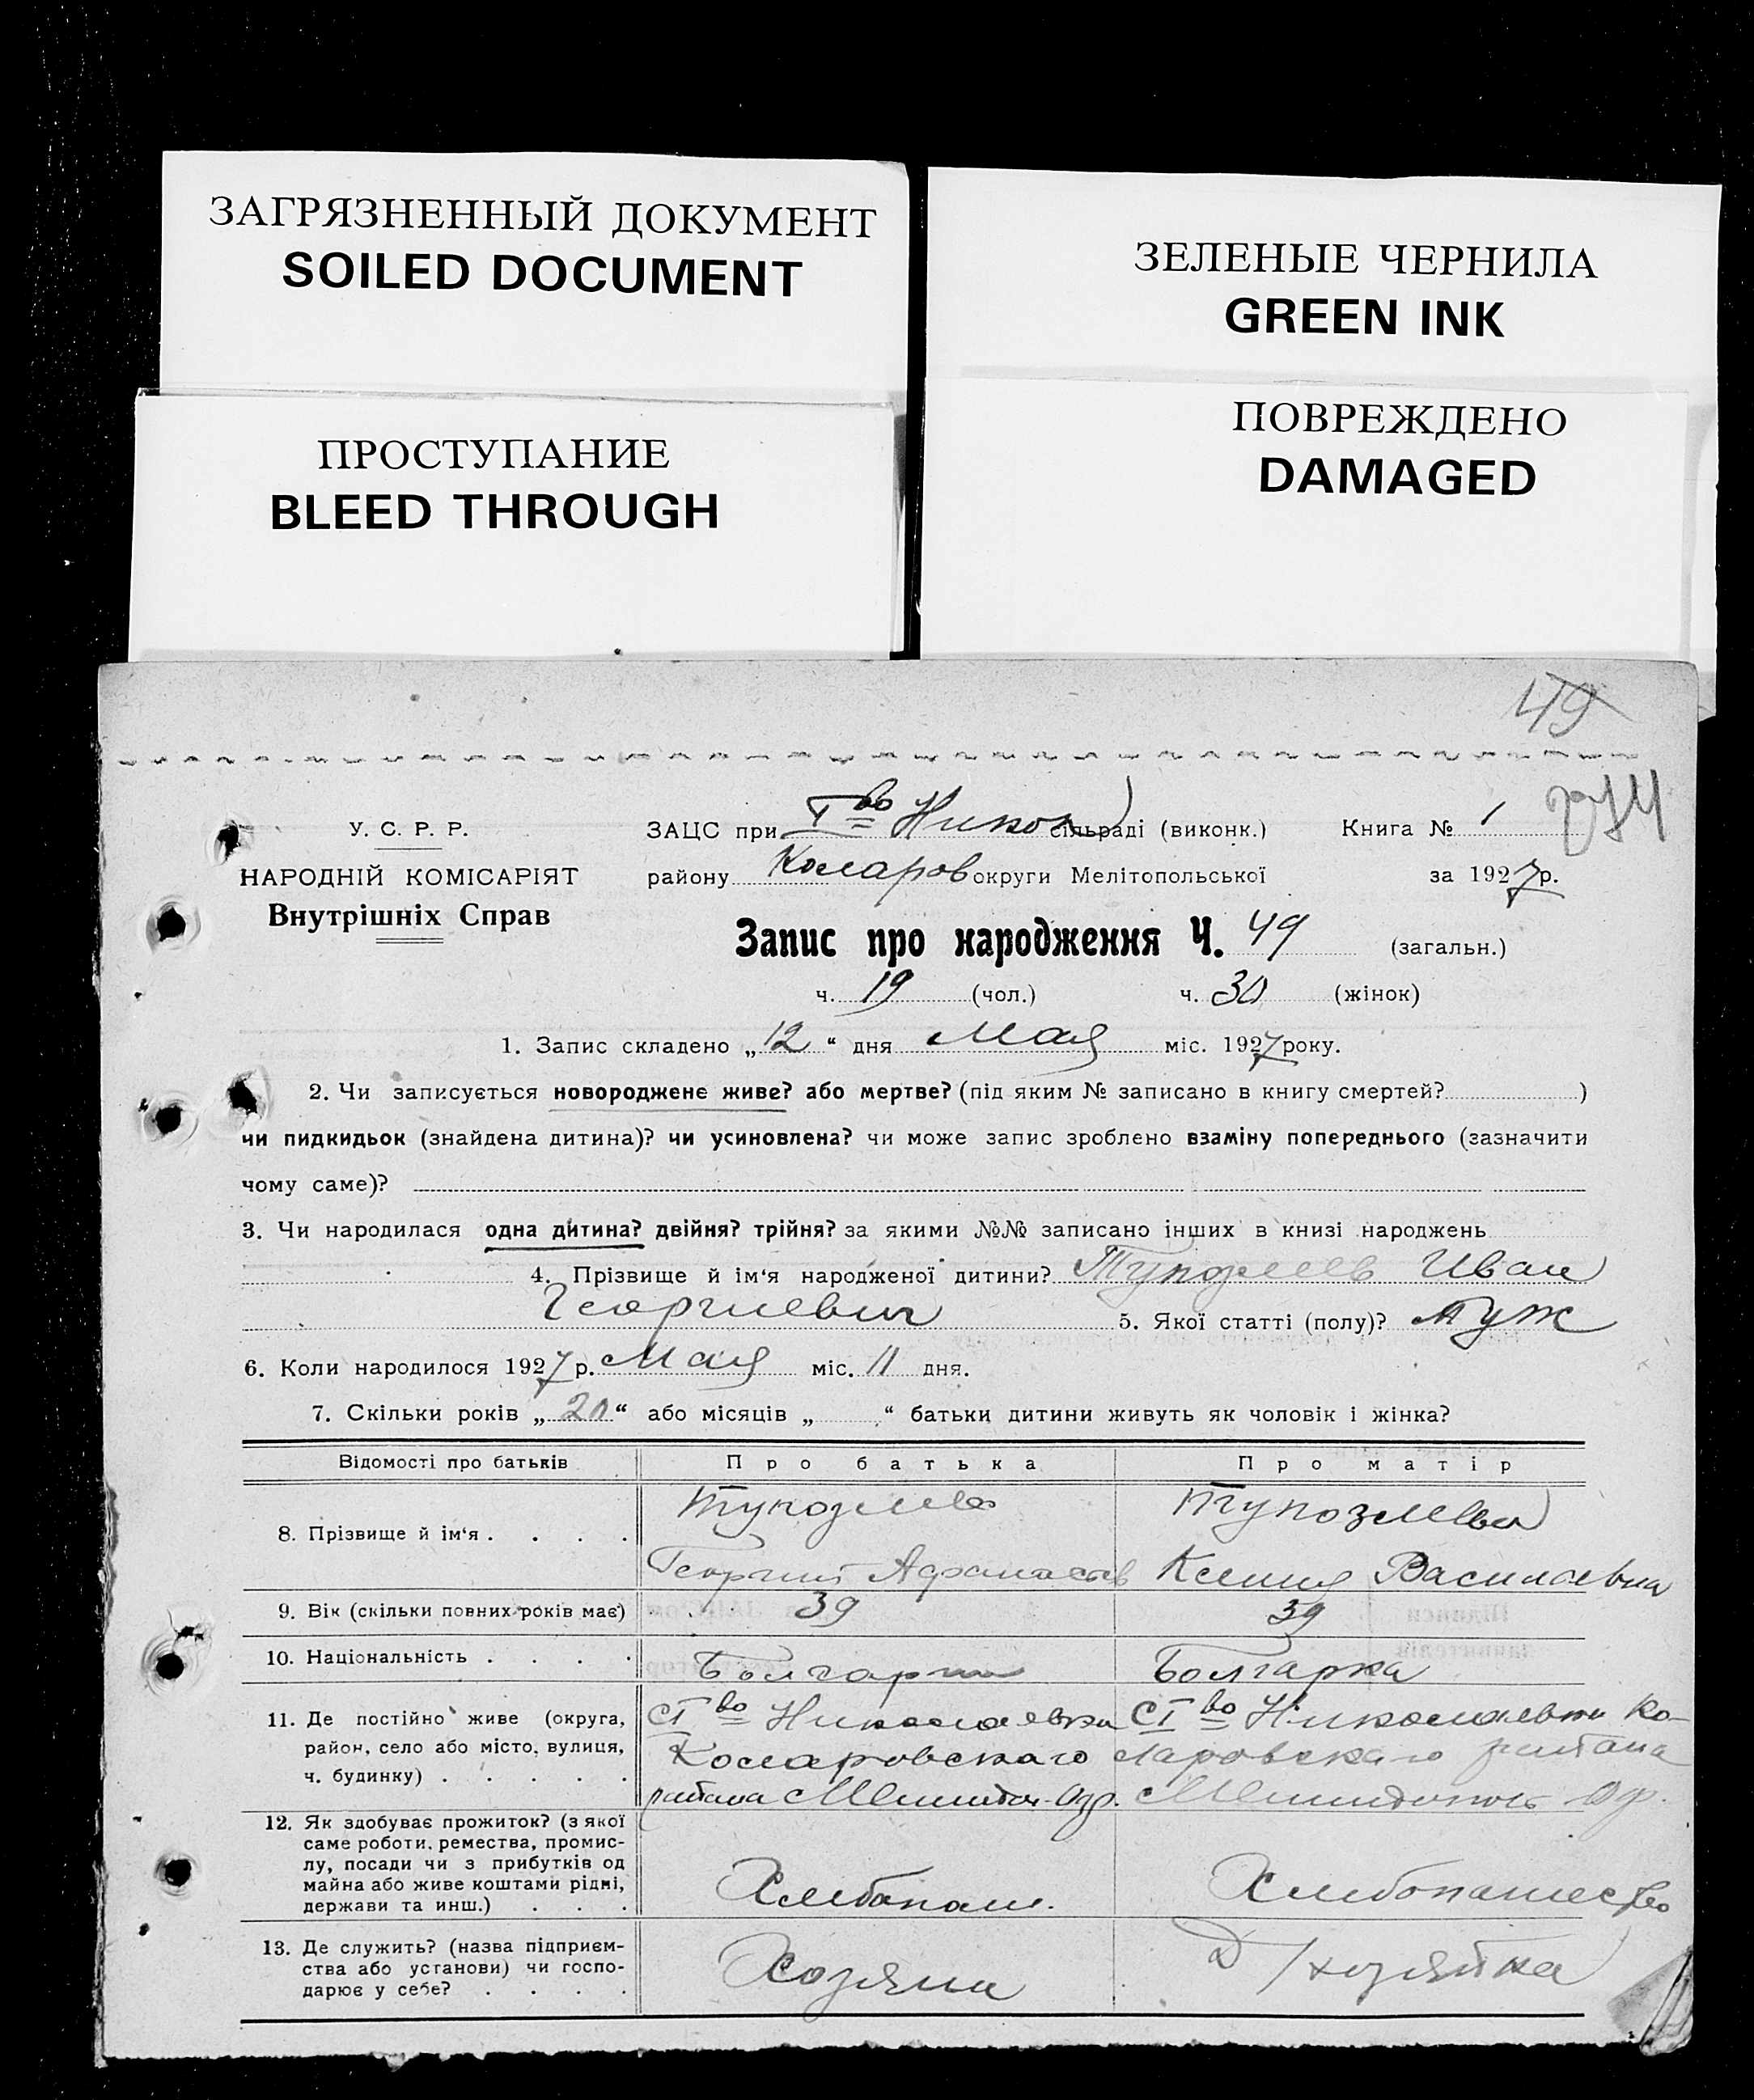 ЗАГРЯЗНЕННЫЙ ДОКУМЕНТ
SOILED DOCUMENT
ЗЕЛЕНЫЕ ЧЕРНИЛА
GREEN INK
ПРОСТУПАНИЕ
BLEED THROUGH
ПОВРЕЖДЕНО
DAMAGED
49
У. С. Р. Р.
НАРОДНІЙ КОМІСАРІЯТ
Внутрішніх Справ
ЗАЦС при I во Никол сільраді (виконк.) Книга № 1
району Коларов округи Мелітопольської за 1927 р.
Запис про народження Ч. 49 (загальн.)
ч. 19 (чол.) ч. 30 (жінок)
1. Запис складено „12“ дня Мая міс. 1927 року.
2. Чи записується новороджене живе? або мертве? (під яким № записано в книгу смертей? )
чи пидкидьок (знайдена дитина)? чи усиновлена? чи може запис зроблено взаміну попереднього (зазначити
чому саме)?
3. Чи народилася одна дитина? двійня? трійня? за якими №№ записано інших в книзі народжень
4. Прізвище й ім‘я народженої дитини? Тукозлиев Иван
Георгиевич 5. Якої статті (полу)? муж
6. Коли народилося 1927 р. Мая міс. 11 дня.
7. Скільки років „20“ або місяців „ “ батьки дитини живуть як чоловік і жінка?
Відомості про батьків Про батька Про матір
8. Прізвище й ім‘я
Георгий Афанасьев Ксения Васильевна
9. Вік (скільки повних років має) 39 39
10. Національність Болгарин Болгарка
11. Де постійно живе (округа,
район, село або місто, вулиця,
ч. будинку)
С I во Николаевки С I во Николаевки Ко-
Коларовскаго ларовскаго района
района Мелитоп. Окр. Мелитопол Окр.
12. Як здобуває прожиток? (з якої
саме роботи, ремества, промис-
лу, посади чи з прибутків од
майна або живе коштами рідні,
держави та инш.)
Хлебопаш. Хлебопашество
13. Де служить? (назва підприєм-
ства або установи) чи госпо-
дарює у себе?
Хозяин Д/хозяйка